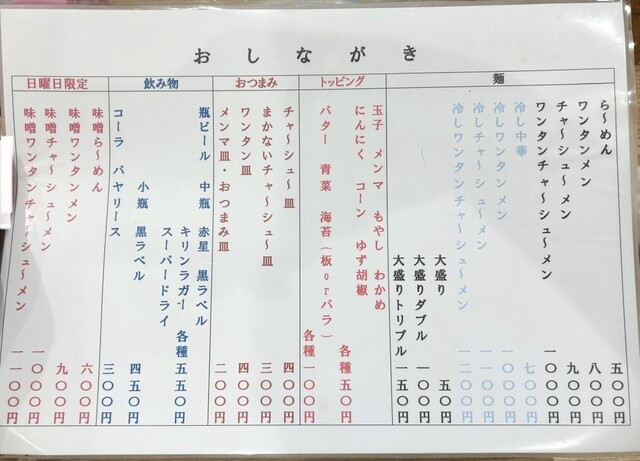 おしながき
麺
ら～めん 五〇〇円
ワンタンメン 八〇〇円
チャ～シュ～メン 九〇〇円
ワンタンチャ～シュ～メン 一〇〇〇円
冷し中華 七〇〇円
冷しワンタンメン 一〇〇〇円
冷しチャ～シュ～メン 一一〇〇円
冷しワンタンチャ～シュ～メン 一二〇〇円
大盛り 五〇円
大盛りダブル 一〇〇円
大盛りトリプル 一五〇円
トッピング
玉子 メンマ もやし わかめ
にんにく コーン ゆず胡椒 各種五〇円
バター 青菜 海苔(板orバラ) 各種一〇〇円
おつまみ
チャ～シュ～皿 四〇〇円
まかないチャ～シュ～皿 三〇〇円
ワンタン皿 四〇〇円
メンマ皿・おつまみ皿 二〇〇円
飲み物
瓶ビール 中瓶 赤星 黒ラベル
キリンラガー 各種五五〇円
スーパードライ
小瓶 黒ラベル 四五〇円
コーラ バヤリース 三〇〇円
日曜日限定
味噌ら～めん 六〇〇円
味噌ワンタンメン 九〇〇円
味噌チャ～シュ～メン 一〇〇〇円
味噌ワンタンチャ～シュ～メン 一一〇〇円